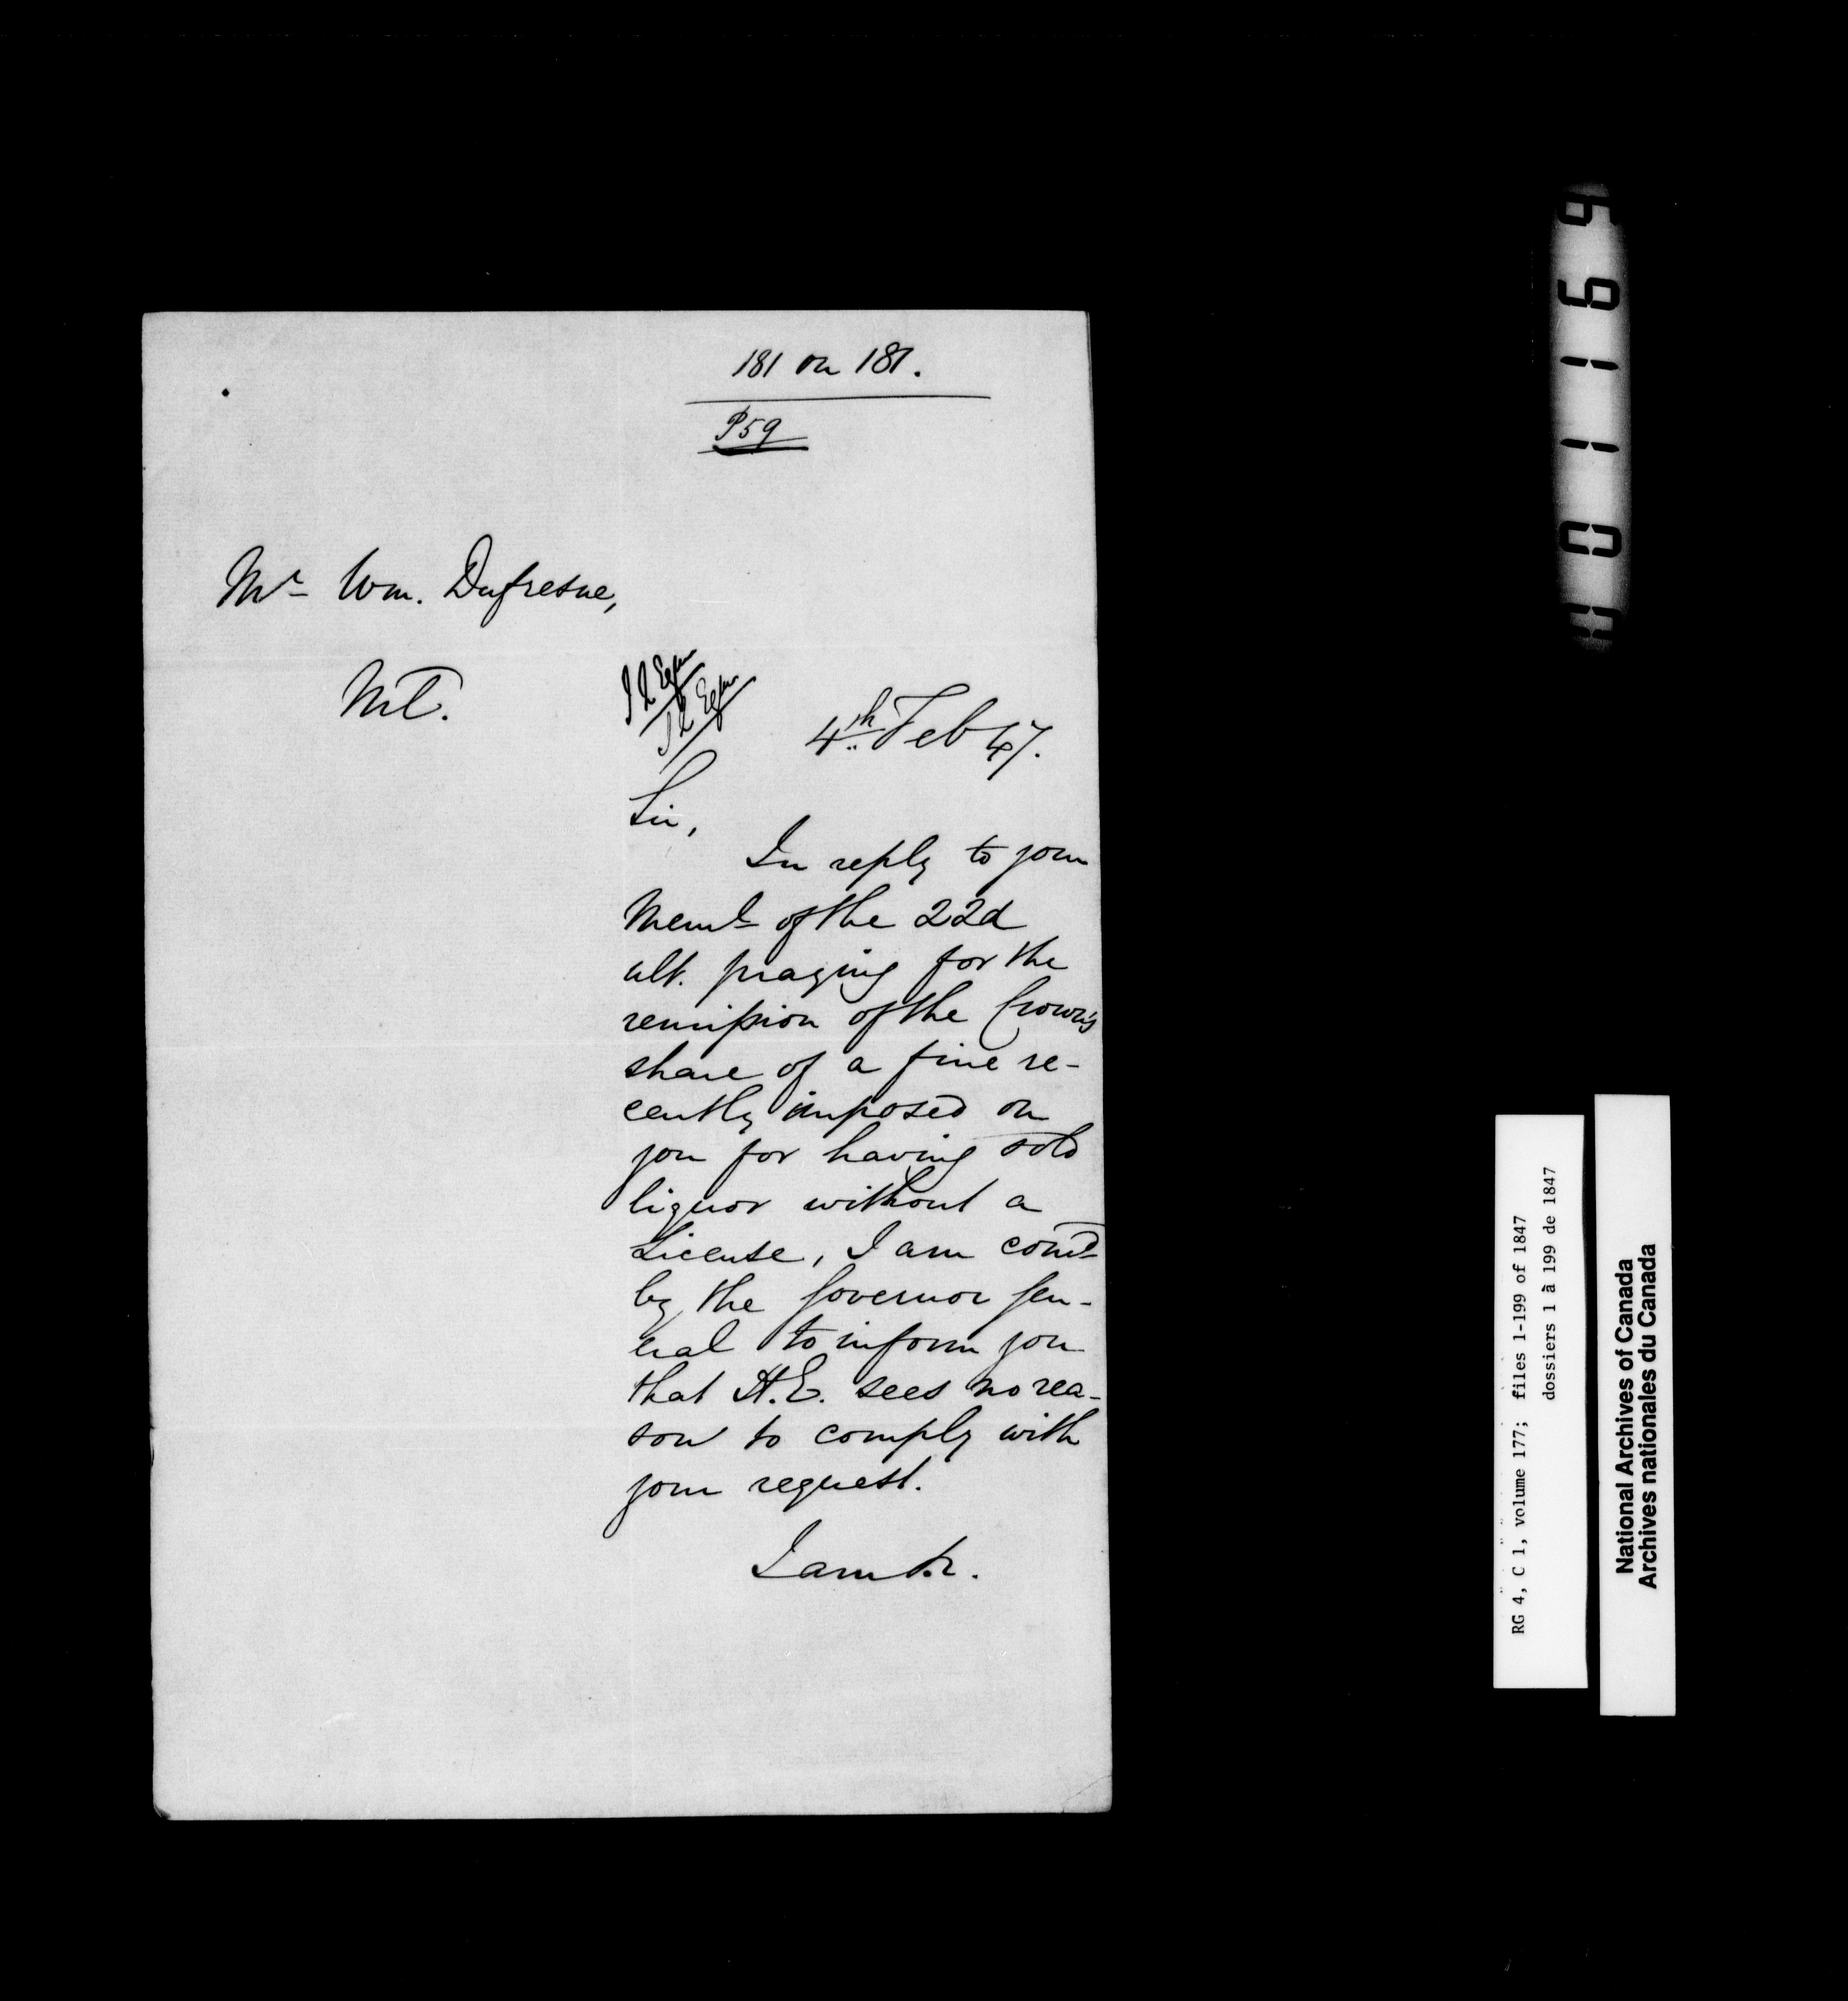 181 on 181.
P59
Mr Wm. Dufresne,
Ml.
4th Feb 47.
Sir,
In reply to your
Meml of the 22d
ult. praying for the
remission of the Crown's
share of a fine re-
cently imposed on
you for having sold
liquor without a
License, I am comd
by the Governor Gen-
eral to inform you
that H.E. sees no rea-
son to comply with
your request.
I am &c.
RG 4, C 1, volume 177; files 1-199 of 1847
dossiers 1 à 199 de 1847
National Archives of Canada
Archives nationales du Canada